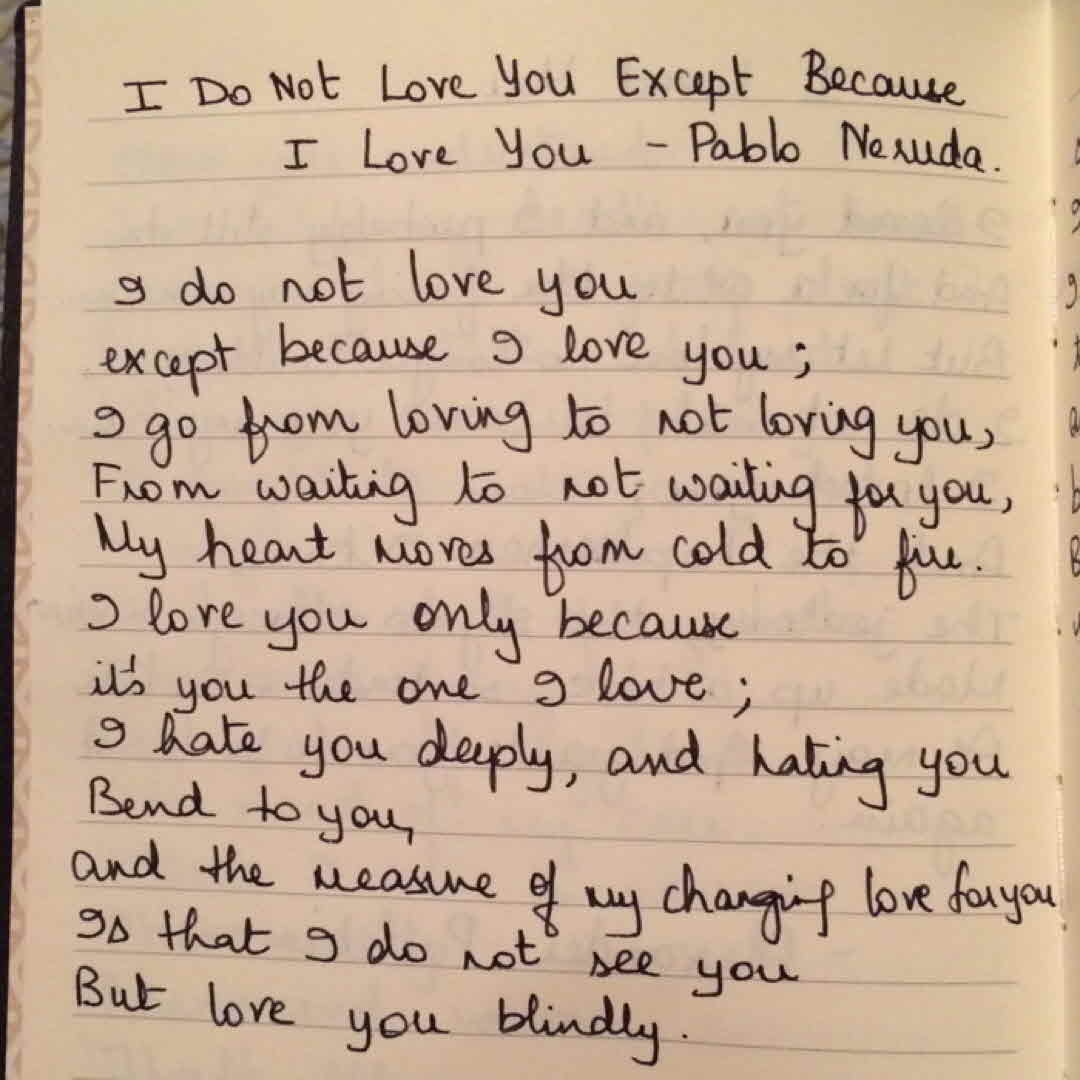 I Do Not Love You Except Because
I Love You - Pablo Neruda.
I do not love you
except because I love you;
I go from loving to not loving you,
From waiting to not waiting for you,
My heart moves from cold to fire.
I love you only because
it's you the one I love;
I hate you deeply, and hating you
Bend to you,
and the measure of my changing love for you
Is that I do not see you
But love you blindly.